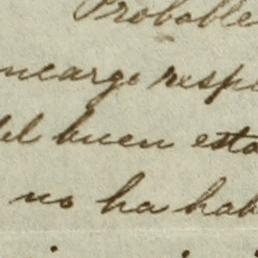 Probable
ncargo resp
del buen esta
no ha hab